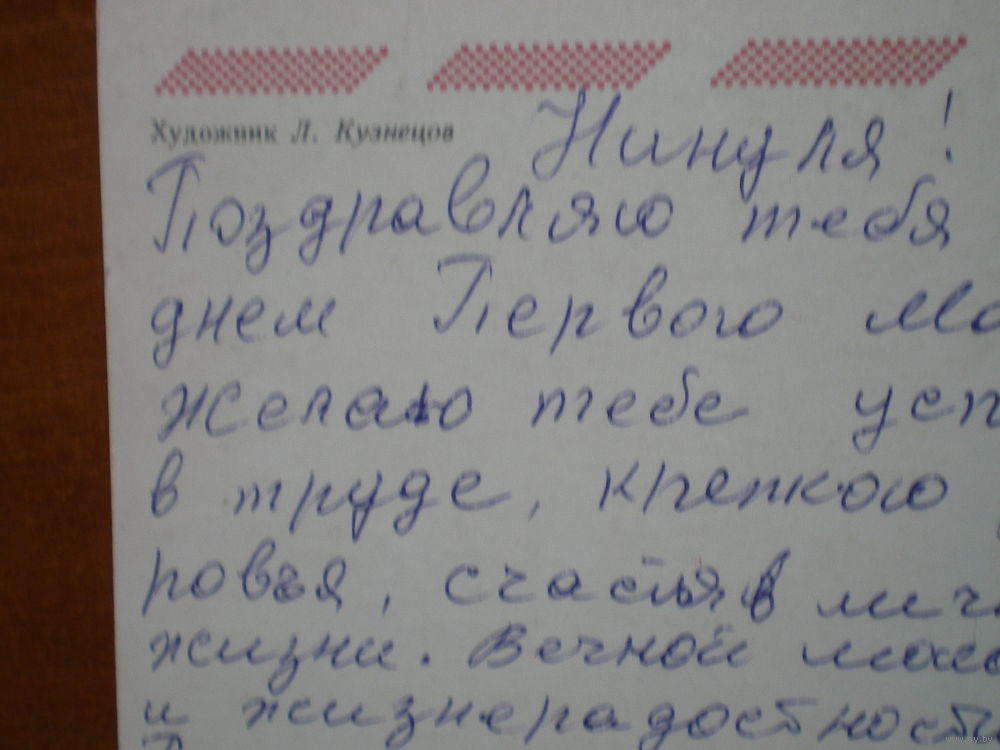 Художник Л. Кузнецов
Нинуля!
Поздравляю тебя
днем Первого Ма
желаю тебе усп
в труде, крепкого
ровья, счастья в лич
жизни. Вечной моло
и жизнерадостност